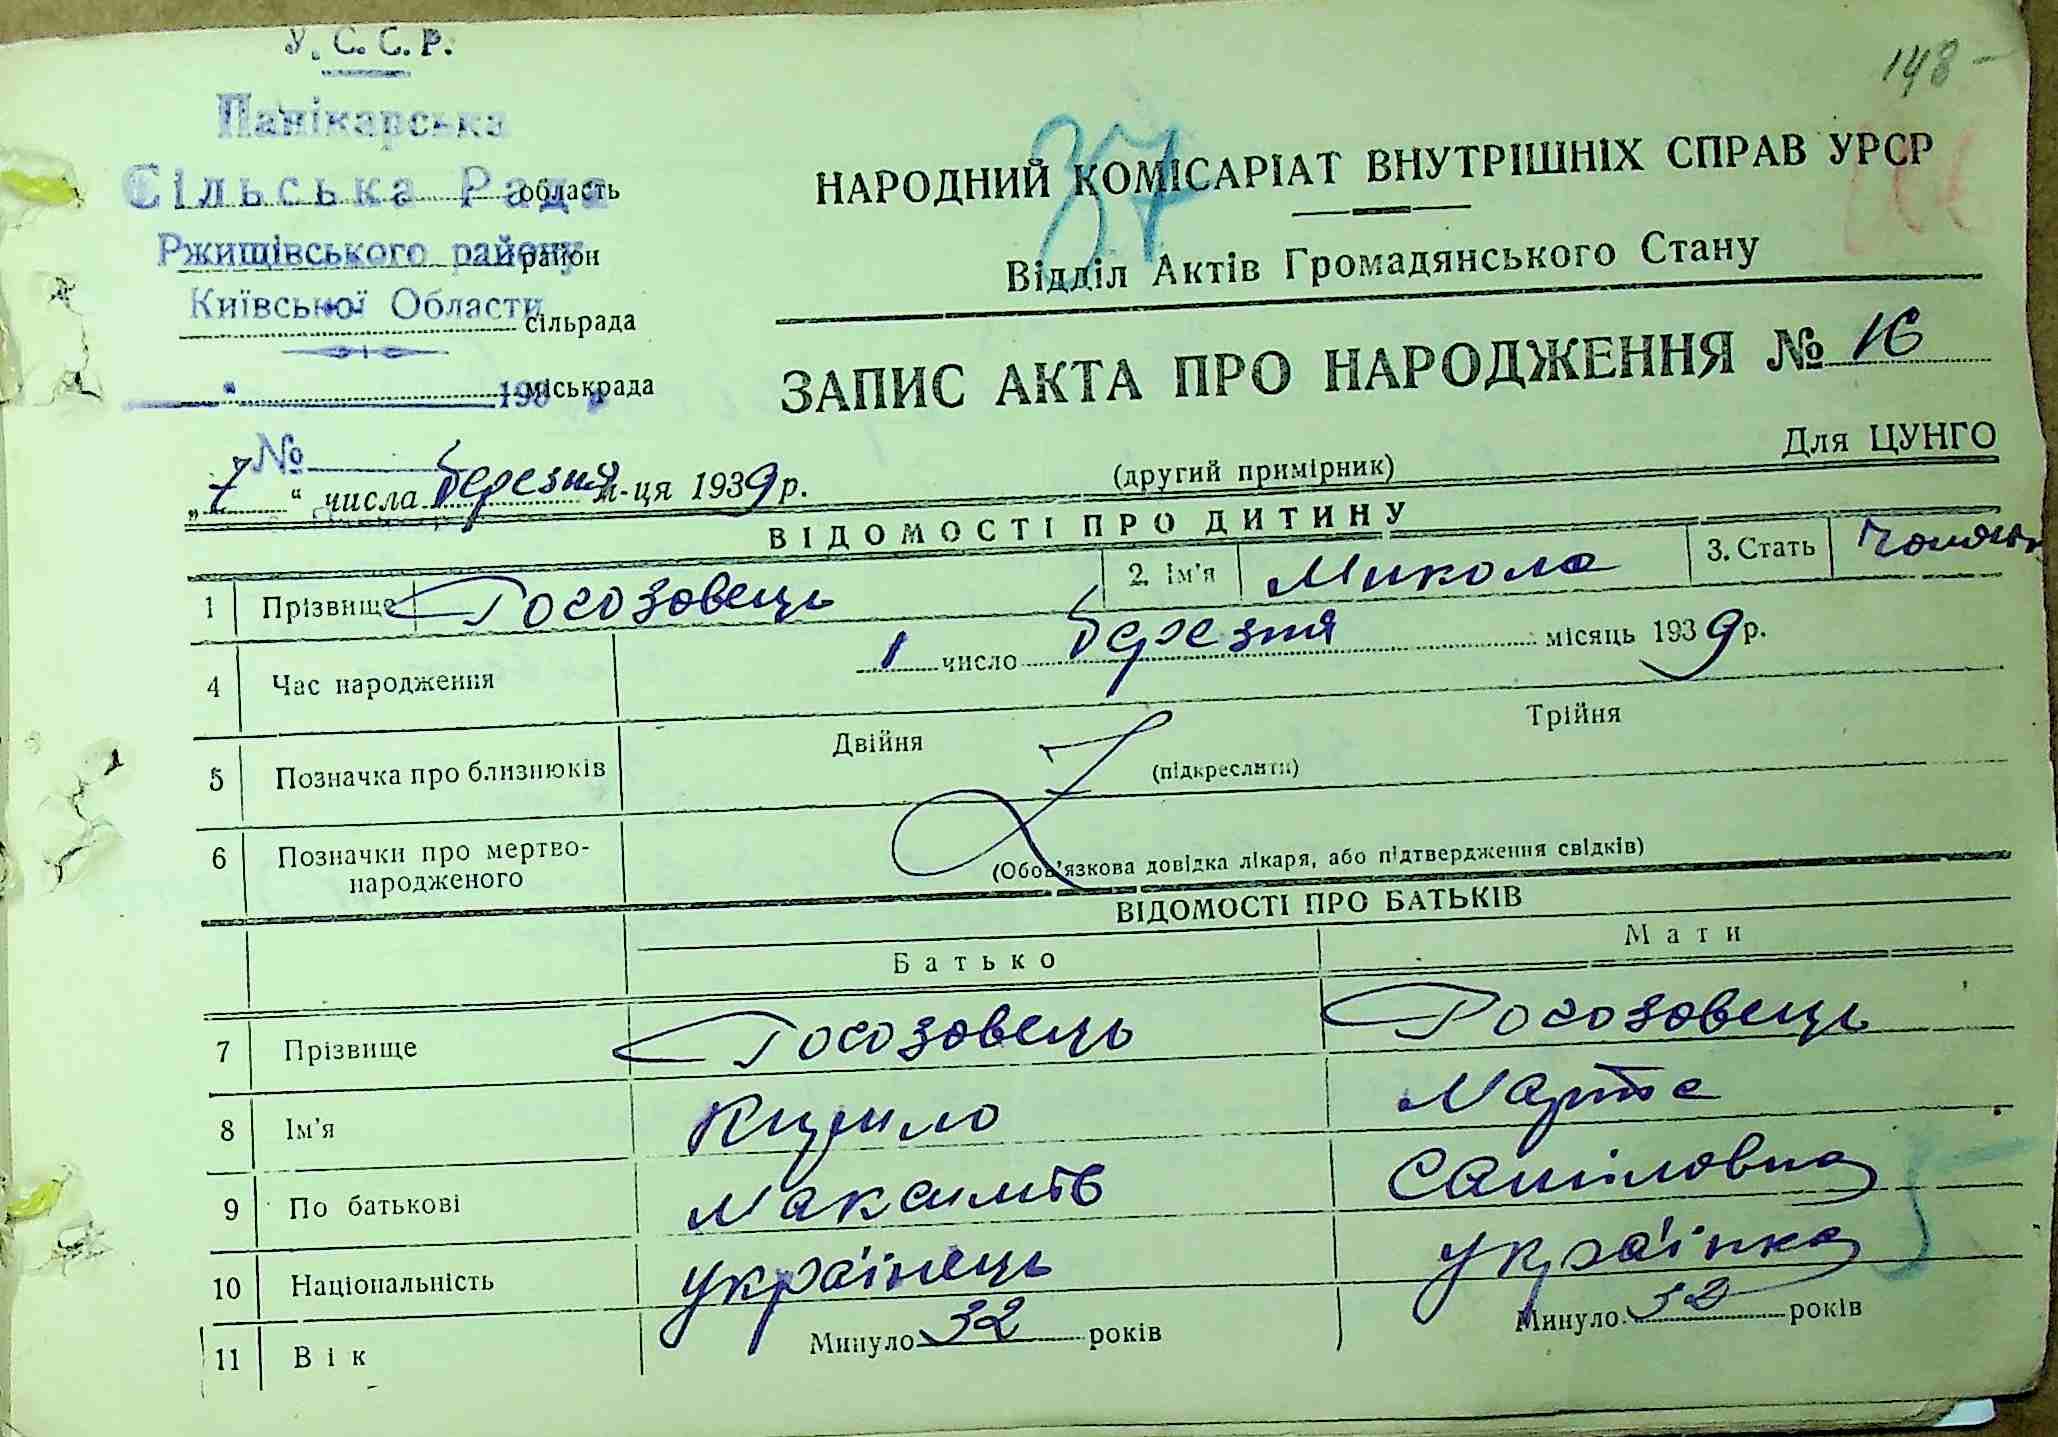 У. С. С. Р.
148
Панікарська
37
Сільська Рада область
НАРОДНИЙ КОМІСАРІАТ ВНУТРІШНІХ СПРАВ УРСР
Ржищівського району район
Відділ Актів Громадянського Стану
Київської Области сільрада
міськрада
ЗАПИС АКТА ПРО НАРОДЖЕННЯ № 16
№
„7“ числа березня м-ця 1939 р.
(другий примірник)
Для ЦУНГО
ВІДОМОСТІ ПРО ДИТИНУ
1 Прізвище Росозовець 2. Ім'я Микола 3. Стать
4 Час народження 1 число березня місяць 1939 р.
5 Позначка про близнюків Двійня (підкреслити) Трійня
6 Позначки про мертво-
народженого (Обов'язкова довідка лікаря, або підтвердження свідків)
ВІДОМОСТІ ПРО БАТЬКІВ
Батько Мати
7 Прізвище Росозовець Росозовець
8 Ім'я Кирило Марта
9 По батькові Максимів
10 Національність українець українка
11 Вік Минуло 32 років Минуло 32 років